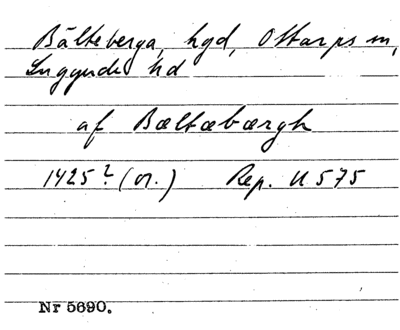 Bälteberga, hgd, Ottarps sn,
Luggude hd
af Bæltæbærgh
1425? (or.) Rep. II 575
Nr 5690.